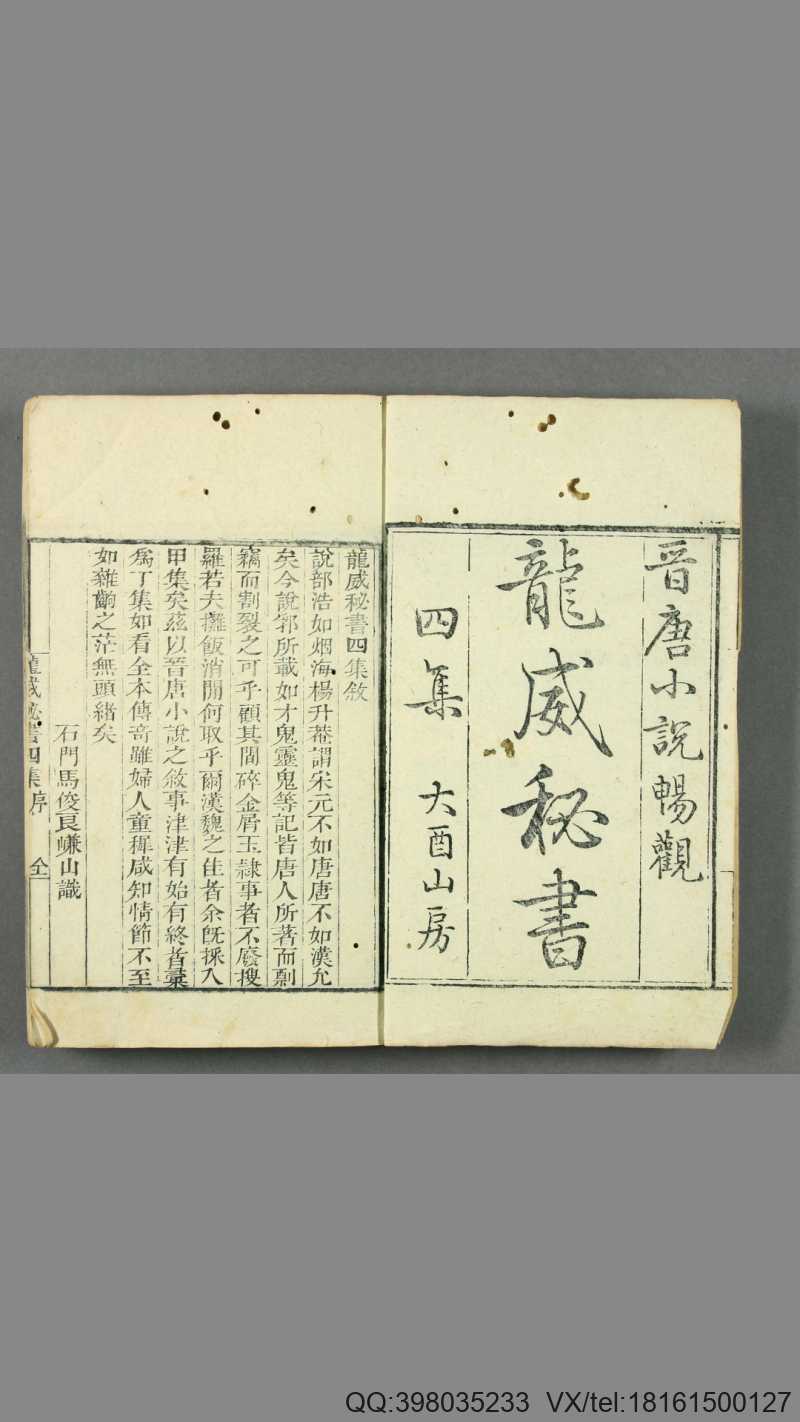 晋唐小說暢觀
龍威秘書
四集 大酉山房
龍威秘書四集敘
說部浩如烟海楊升菴謂宋元不如唐唐不如漢允
矣今說郛所載如才鬼靈鬼等記皆唐人所著而剽
竊而割裂之可乎顧其間碎金屑玉隷事者不廢搜
羅若夫攤飯消閒何取乎爾漢魏之佳者余旣採入
甲集矣茲以晉唐小說之敘事津津有始有終者彙
爲丁集如看全本傳奇雖婦人童稺咸知情節不至
如雜齣之茫無頭緒矣
石門馬俊良嵰山識
龍威秘書四集序 全
QQ:398035233 VX/tel:18161500127